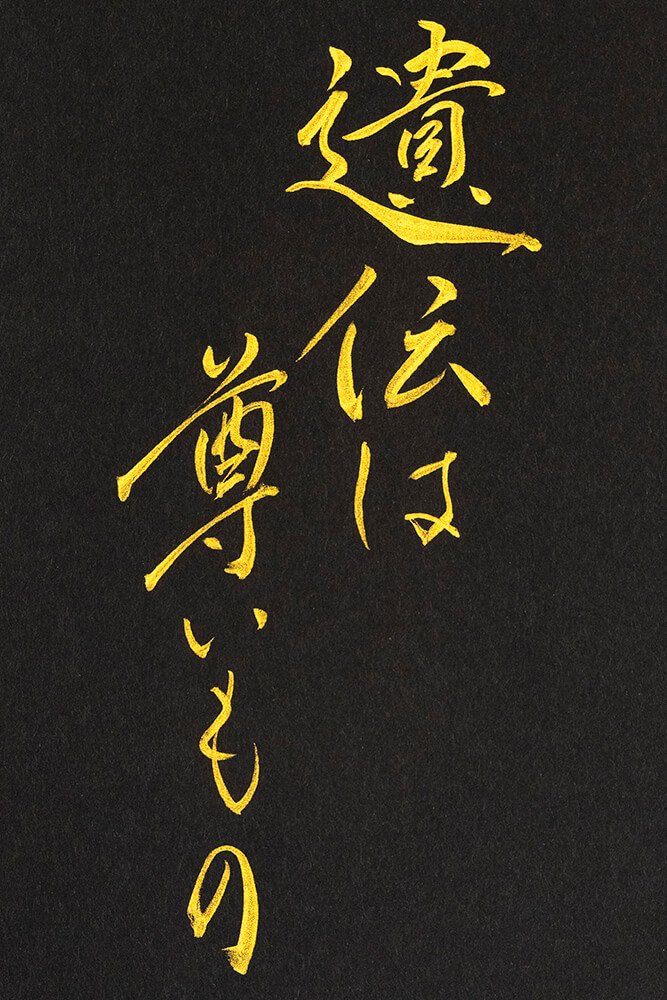 遺伝は
尊いもの